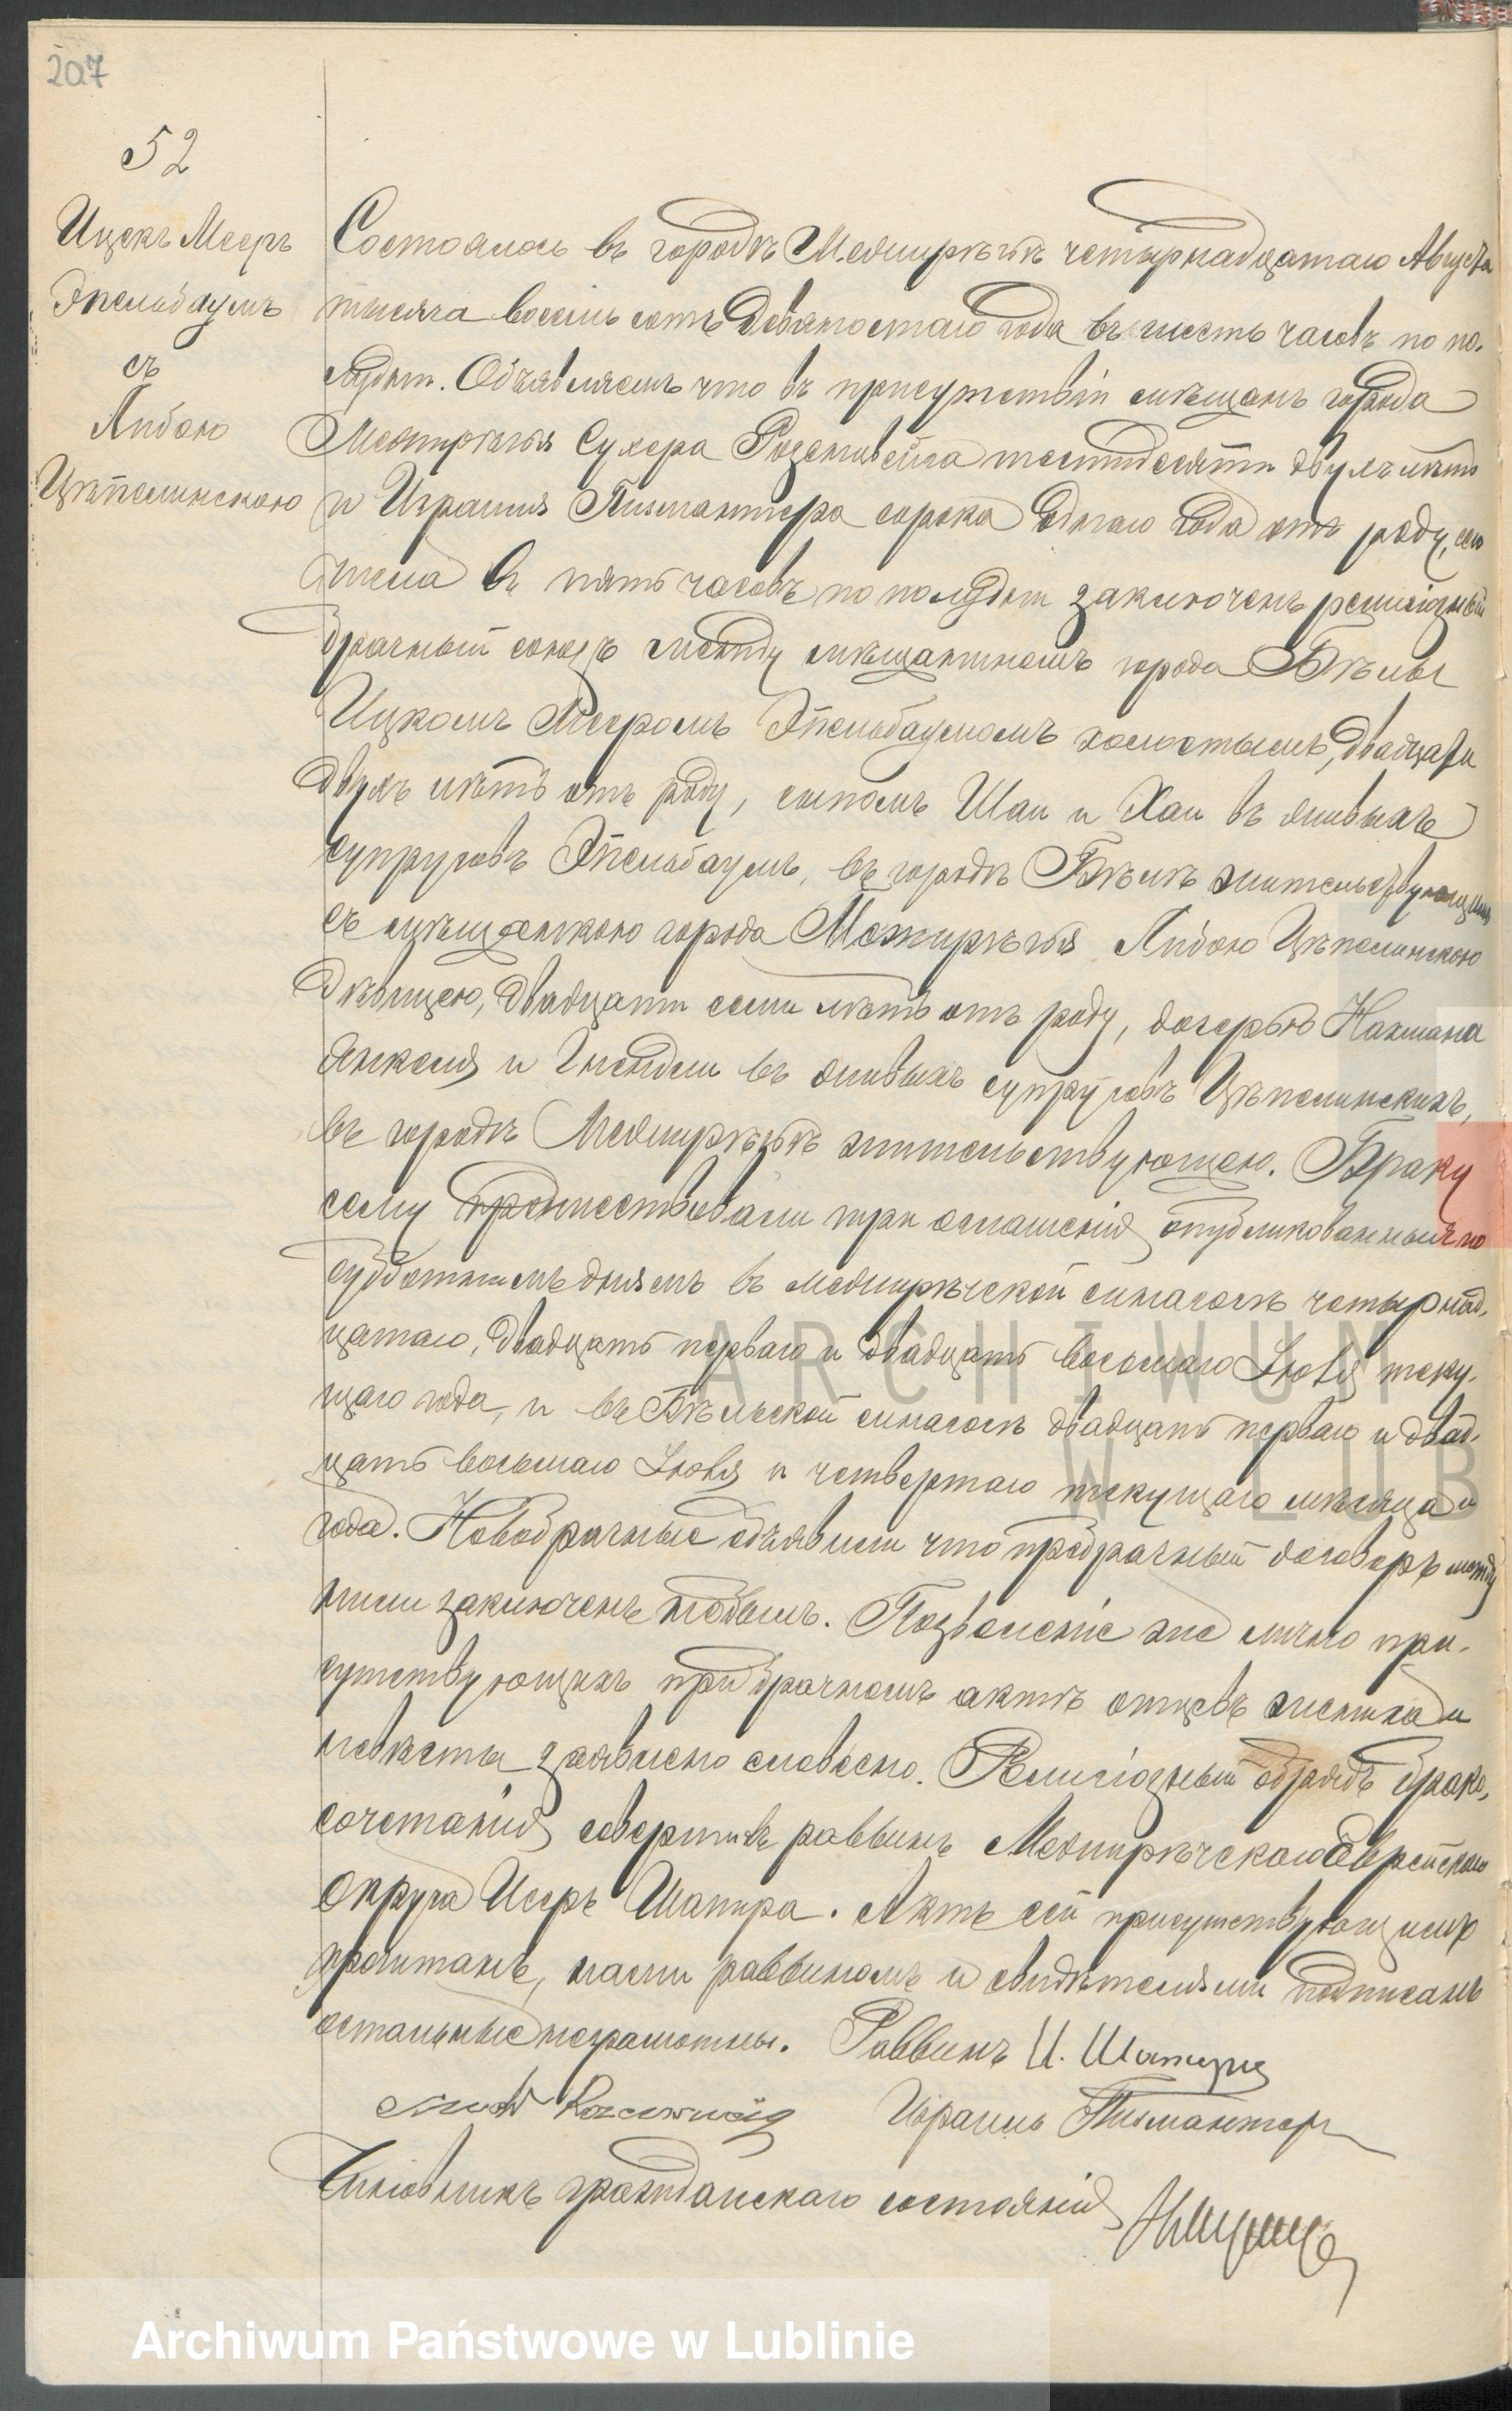 207
52
Ицекъ Мееръ
Эпельбаумъ
съ
Либою
Цѣпелинскою
Состоялось въ городѣ Межирѣчьѣ четырнадцатаго Августа
тысяча восемь сотъ девяностаго года въ шесть часовъ по по-
лудни. Объявляемъ что въ присутствіи мѣщанъ города
Межирѣчья Сухера Розенцвейга шестидесяти двухъ лѣтъ
и Израиля Писмантера сорока одного года отъ роду, сего
числа въ пять часовъ по полудни заключенъ религіозный
брачный союзъ между мѣщаниномъ города Бѣлы
Ицкомъ Мееромъ Эпельбаумомъ холостымъ, двадцати
двухъ лѣтъ отъ роду, сыномъ Шаи и Хаи въ живыхъ
супруговъ Эпельбаумъ, въ городѣ Бѣлѣ жительствующимъ
съ мѣщанкою города Межирѣчья Либою Цѣпелинскою
дѣвицею, двадцати семи лѣтъ отъ роду, дочерью Нахмана
Янкеля и Гнендли въ живыхъ супруговъ Цѣпелинскихъ,
въ городѣ Межирѣчьѣ жительствующею. Браку
сему предшествовали три оглашенія опубликованныя по
субботнимъ днямъ въ межирѣческой синагогѣ четырнад-
цатаго, двадцать перваго и двадцать восьмаго Іюля теку-
щаго года, и въ Бѣльской синагогѣ двадцать перваго и двад-
цать восьмаго Іюля и четвертаго текущаго мѣсяца и
года. Новобрачные объявили что предбрачный договоръ между
ними заключенъ небылъ. Позволеніе же лично при-
сутствующихъ при брачномъ актѣ отцевъ жениха и
невѣсты заявлено словесно. Религіозный обрядъ брако-
сочетанія совершивъ раввинъ Межирѣчскаго Еврейскаго
Округа Исеръ Шапира. Актъ сей присутствующимъ
прочитанъ, нами раввиномъ и свидѣтелями подписанъ
остальные неграмотны. Раввинъ И. Шапира
Израиль Писмантеръ
Чиновникъ гражданскаго состоянія
ARCHIWUM
W LUB
Archiwum Państwowe w Lublinie